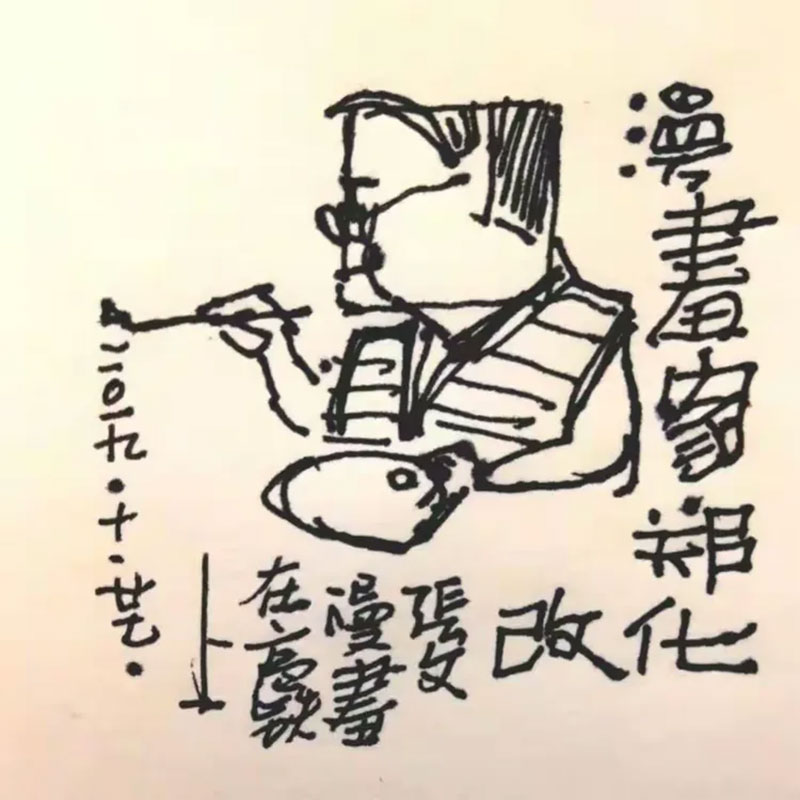 漫畫家郑化改
張文
漫畫
在
上
二〇一九·十·廿